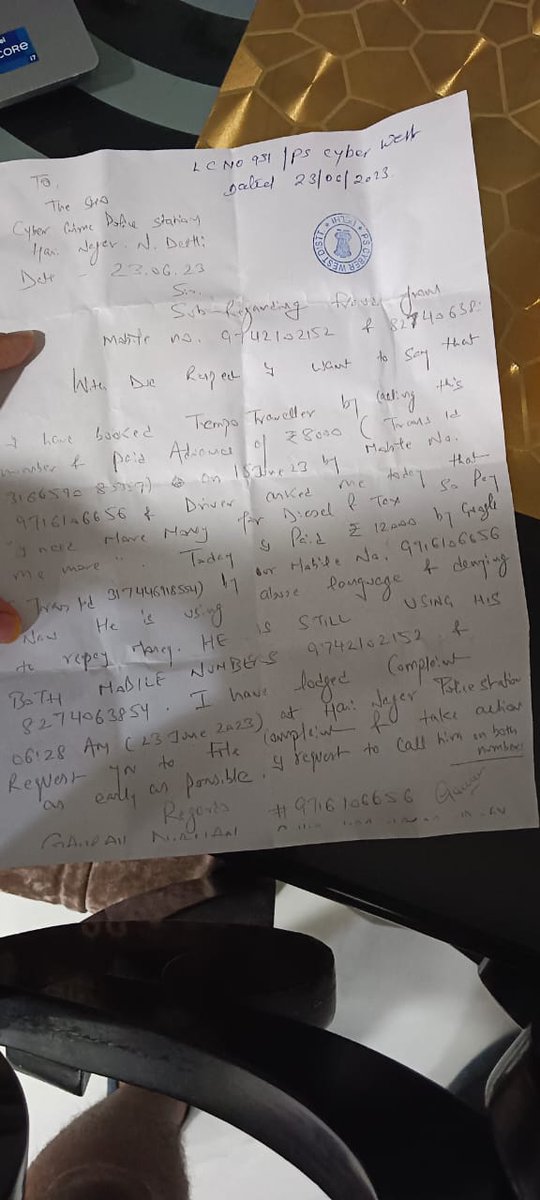 CORE
i7
LC NO 931 / PS Cyber West
Dated 23/06/2023
PS CYBER WEST DISTT
To,
The SHO
Cyber Crime Police Station
Hari Nagar N. Delhi
Date 23.06.23
Sir,
Sub- Regarding fraud from
Mobile no. 9742102152 & 82740638
With Due Respect I want to say that
I have booked Tempo Traveller by calling this
number & Paid Advance of ₹8000 (Trans Id
on 15 June 23 by Mobile No.
9716106656 & Driver asked me today that
"I need More Money for Diesel & Tax So Pay
me more". Today I Paid ₹ 12000 by Google
Trans Id 317446918554) by our Mobile No. 9716106656
Now He is using abuse language & denying
to repay Money. HE IS STILL USING HIS
BOTH MOBILE NUMBERS 9742102152 &
8274063854. I have lodged Complaint
06:28 Am (23 June 2023) at Hari Nagar Police Station
Request you to File Complaint & take action
as early as possible. I request to call him on both
numbers
Regards #9716106656